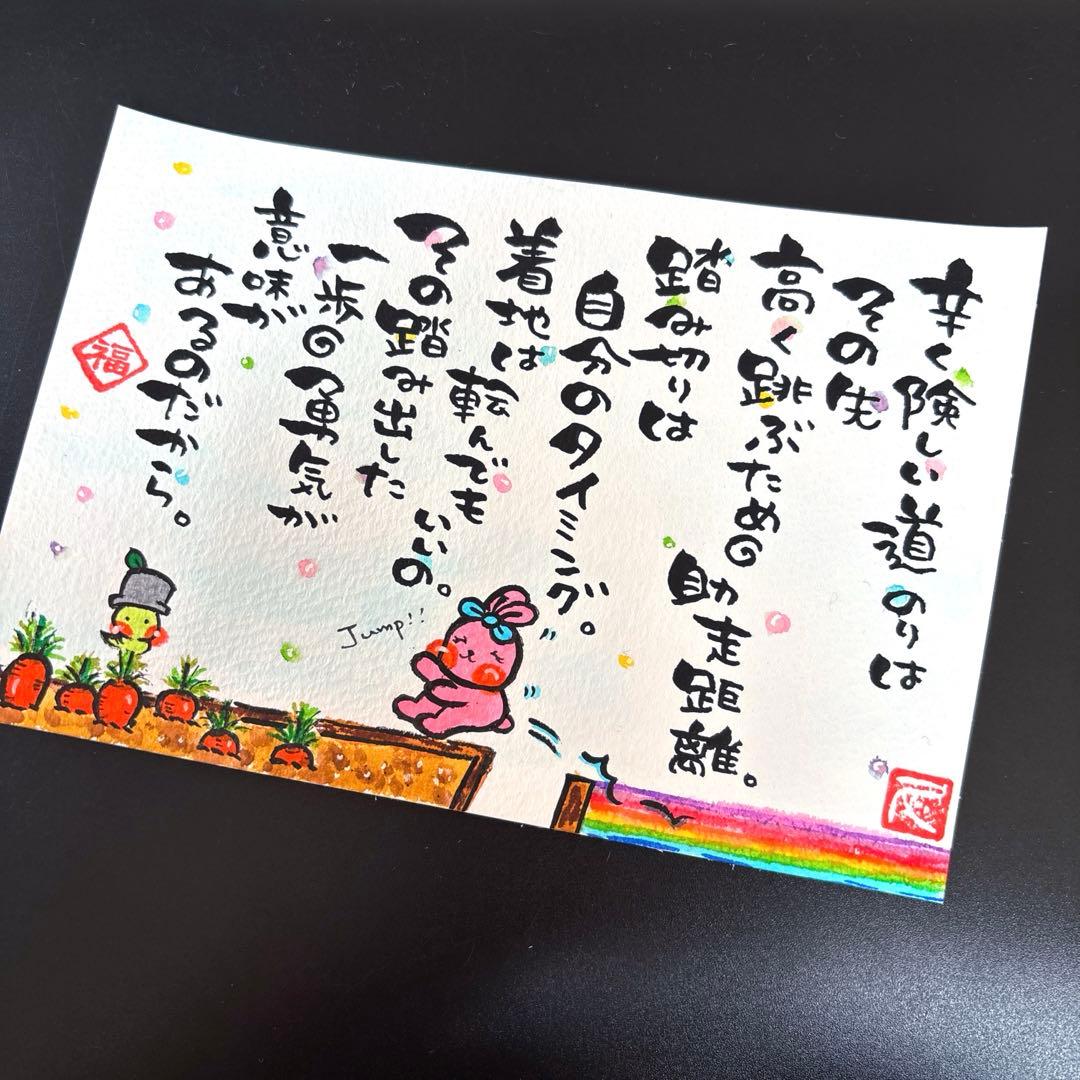 辛く険しい道のりは
その先
高く跳ぶための助走距離。
踏み切りは
自分のタイミング。
着地は
転んでも
いいの。
その踏み出した
一歩の勇気が
意味が
あるのだから。
福
Jump!!